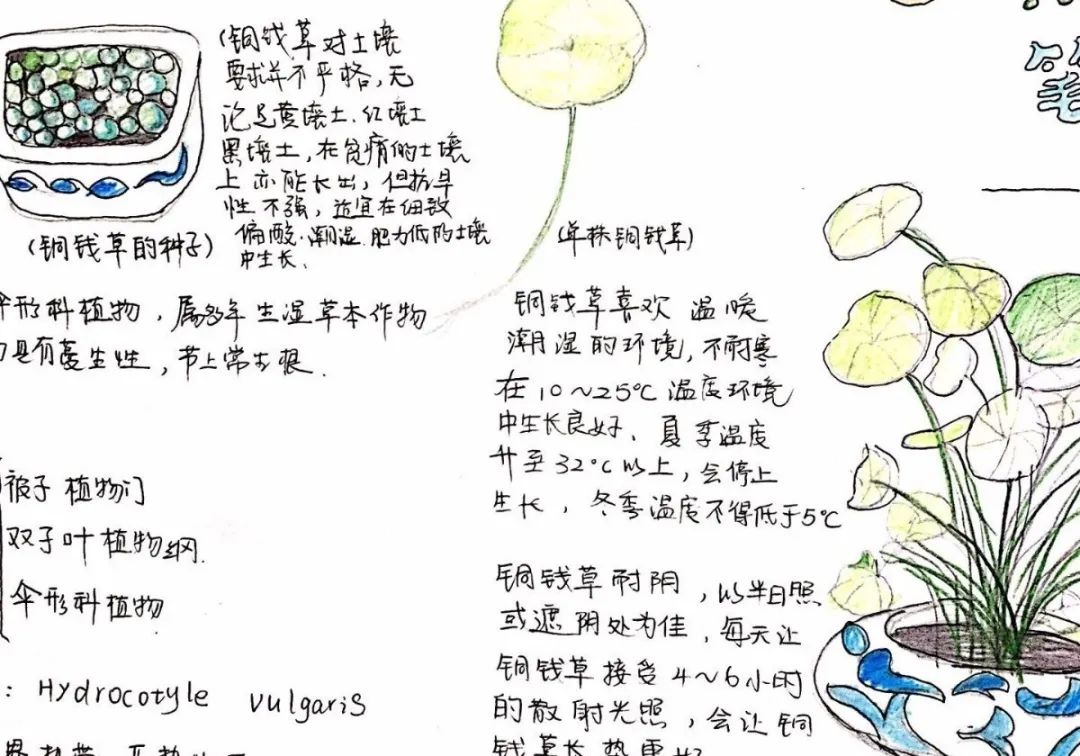 (铜钱草对土壤
要求并不严格,无
论是黄壤土.红壤土
黑壤土,在贫瘠的土壤
上亦能长出,但抗旱
性不强,适宜在细致
偏酸.潮湿.肥力低的土壤
中生长.
(铜钱草的种子)
(单株铜钱草)
伞形科植物,属多年生湿草本作物
具有蔓生性,节上常生根.
铜钱草喜欢温暖
潮湿的环境,不耐寒
在10~25℃温度环境
中生长良好、夏季温度
升至32℃以上,会停止
生长,冬季温度不得低于5℃
被子植物门
双子叶植物纲.
伞形科植物
铜钱草耐阴,以半日照
或遮阴处为佳,每天让
铜钱草接受4~6小时
的散射光照,会让铜
钱草长势更好
: Hydrocotyle vulgaris